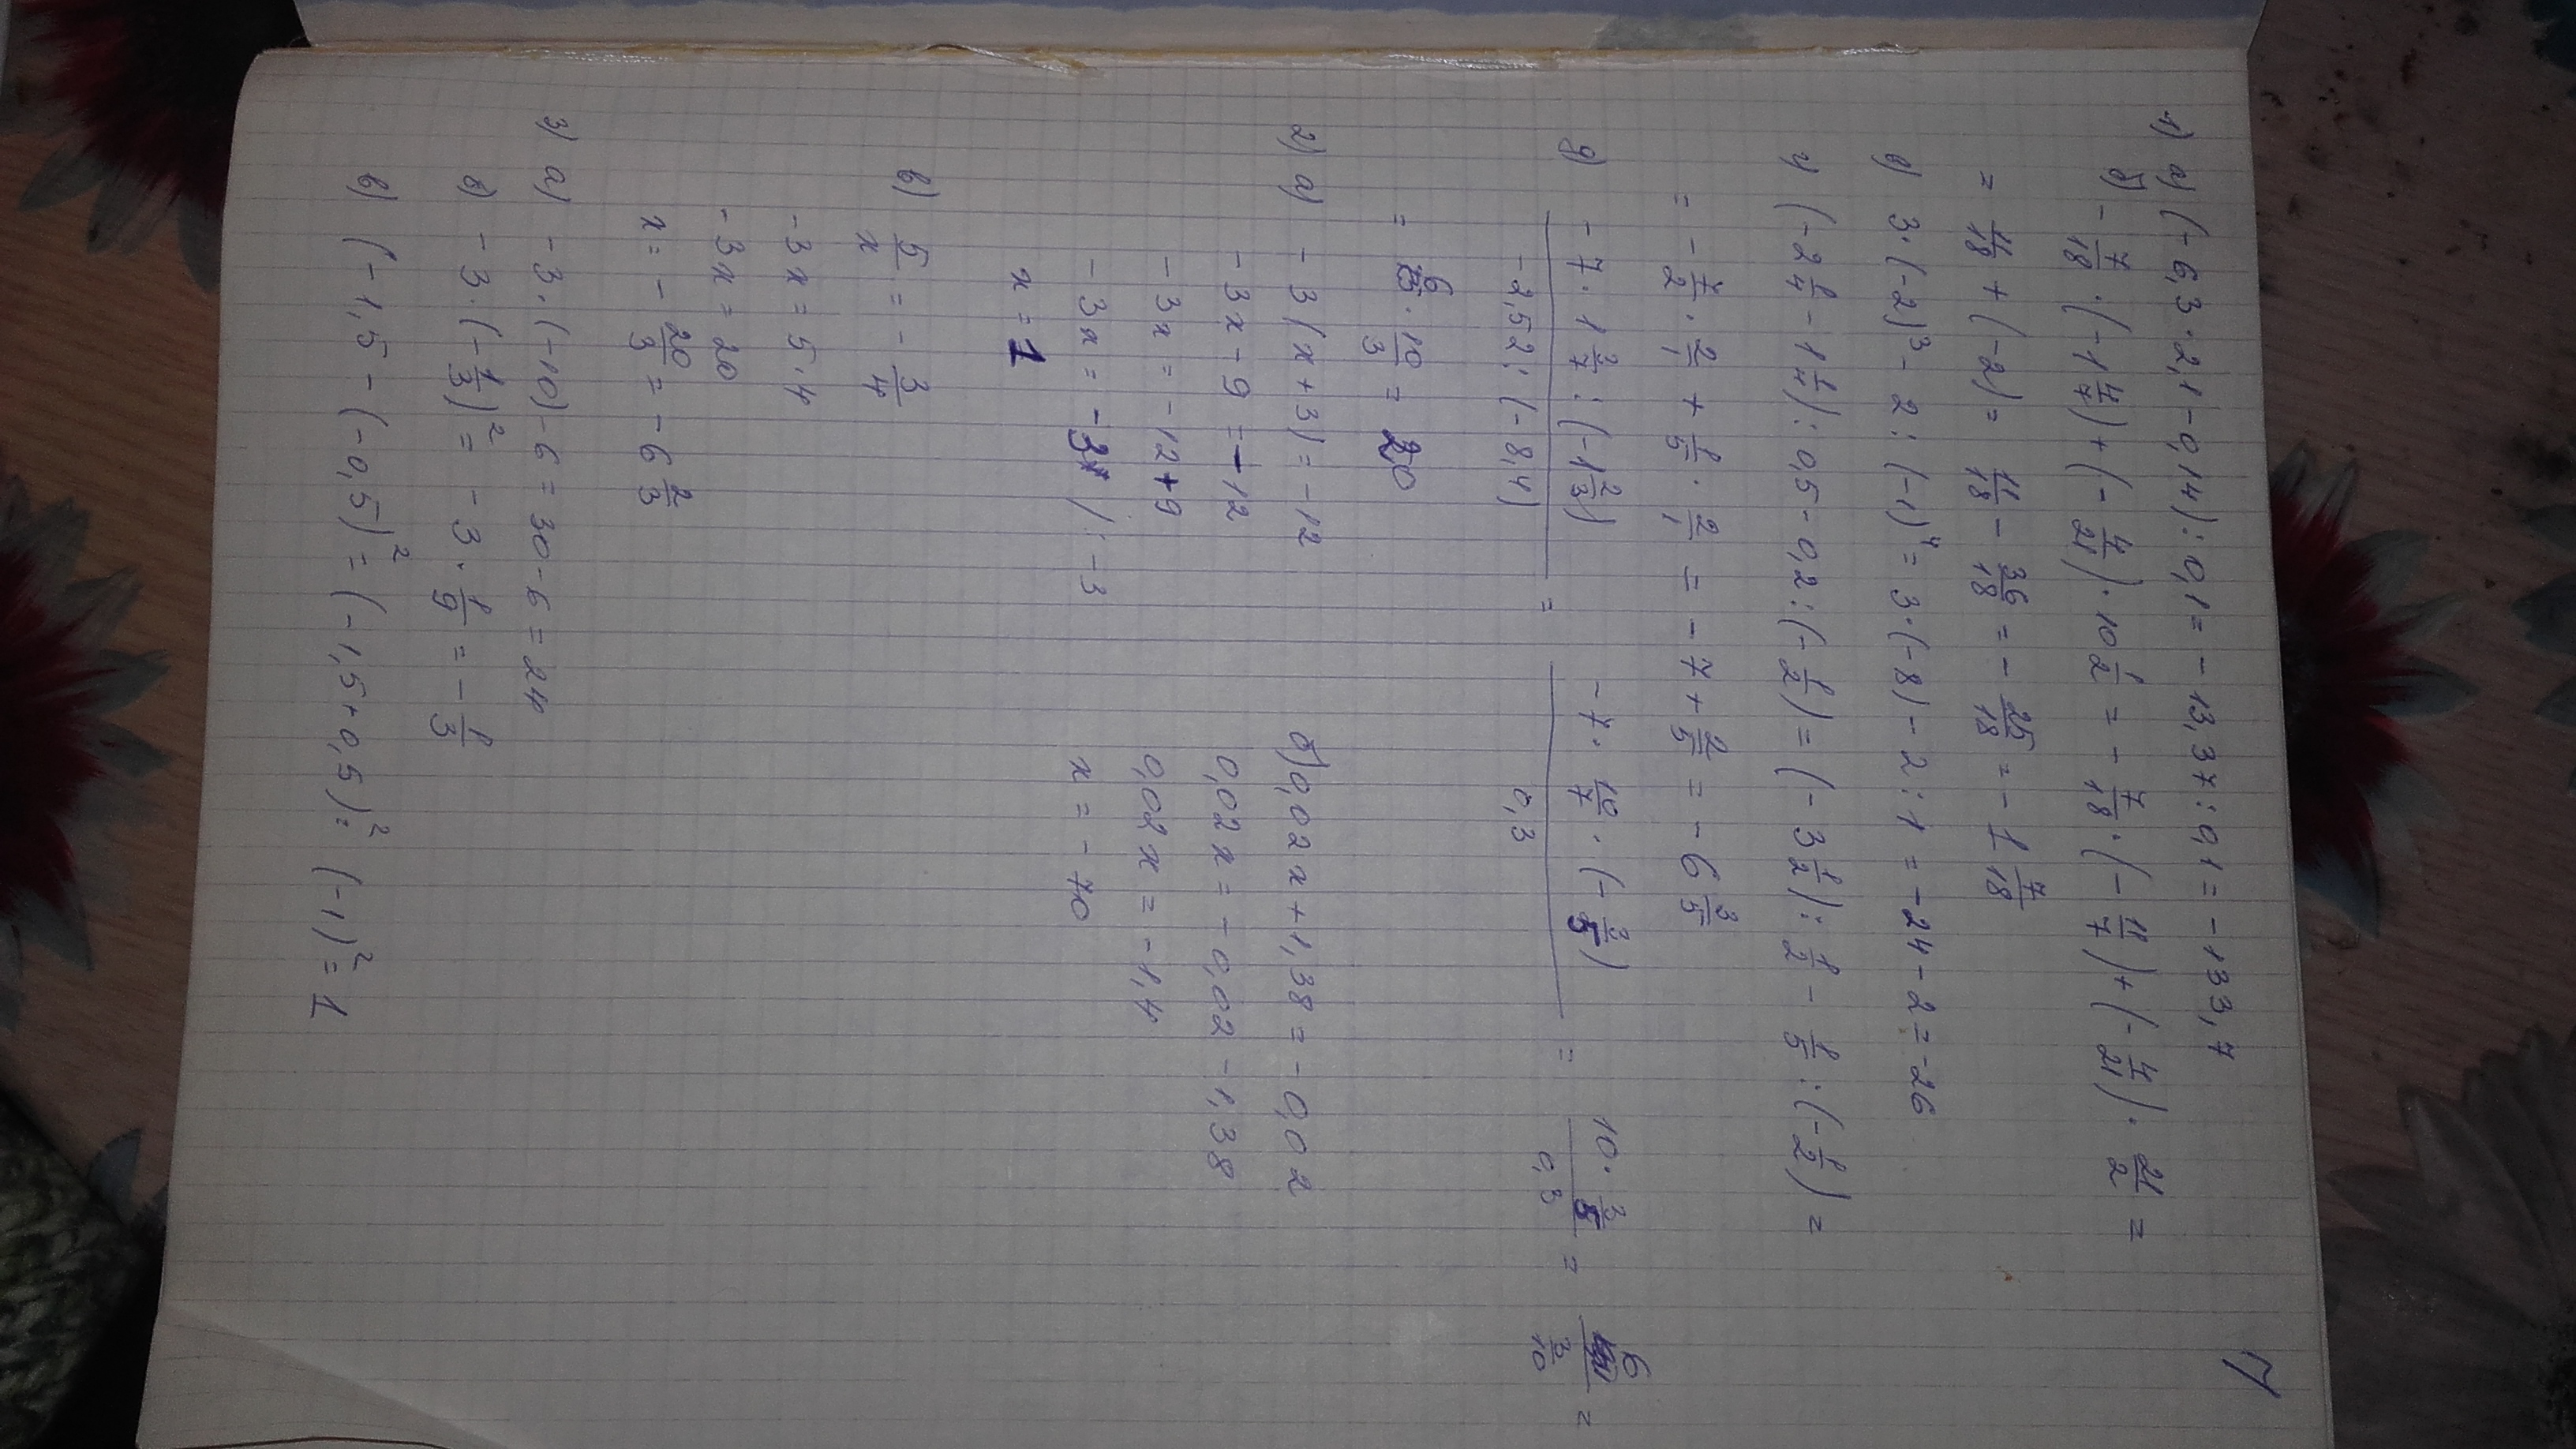 1) а) (-6,3·2,1-0,14):0,1=-13,37:0,1=-133,7
б) -7/18·(-1 4/7)+(-4/21)·10 1/2=-7/18·(-11/7)+(-4/21)·21/2=
=11/18+(-2)=11/18-36/18=-25/18=-1 7/18
в) 3·(-2)³-2:(-1)⁴=3·(-8)-2:1=-24-2=-26
г) (-2 1/4-1 1/4):0,5-0,2:(-1/2)=(-3 1/2):1/2-1/5:(-1/2)=
=-7/2·2/1+1/5·2/1=-7+2/5=-6 3/5
д) -7·1 3/7:(-1 2/3)/-2,52:(-8,4)=-7·10/7·(-3/5)/0,3=10·3/5/0,3=6/3/10=
=6·10/3=20
2) а) -3(x+3)=-12
-3x-9=-12
-3x=-12+9
-3x=-3 /:-3
x=1
б) 0,02x+1,38=-0,02
0,02x=-0,02-1,38
0,02x=-1,4
x=-70
в) 5/x=-3/4
-3x=5·4
-3x=20
x=-20/3=-6 2/3
3) а) -3·(-10)-6=30-6=24
б) -3·(-1/3)²=-3·1/9=-1/3
в) (-1,5-(-0,5)²=(-1,5+0,5)²=(-1)²=1